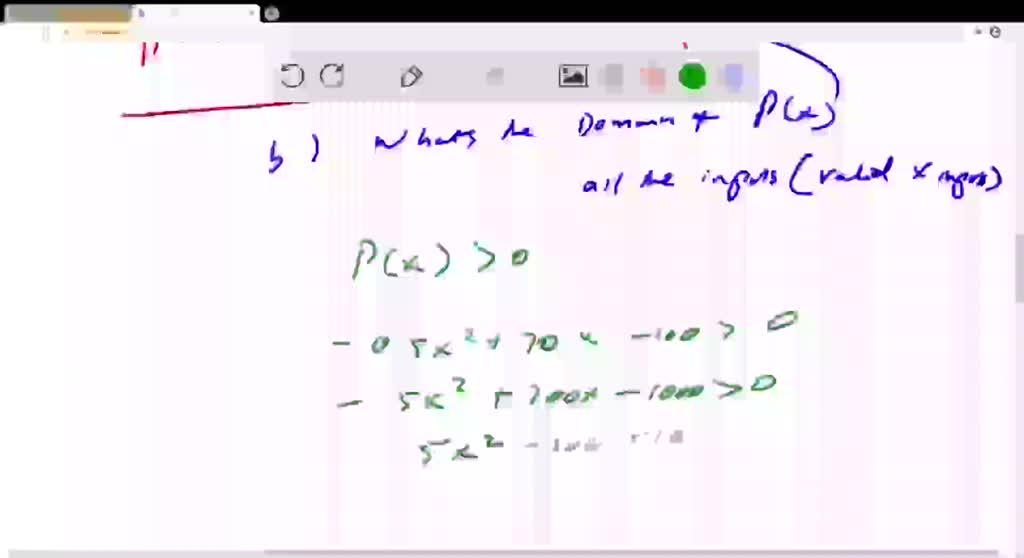 b) Whats the Domain of P(x)
all the inputs (valid x inputs)
P(x) > 0
- 0 5x² + 70x - 100 > 0
- 5x² + 700x - 1000 > 0
5x² -